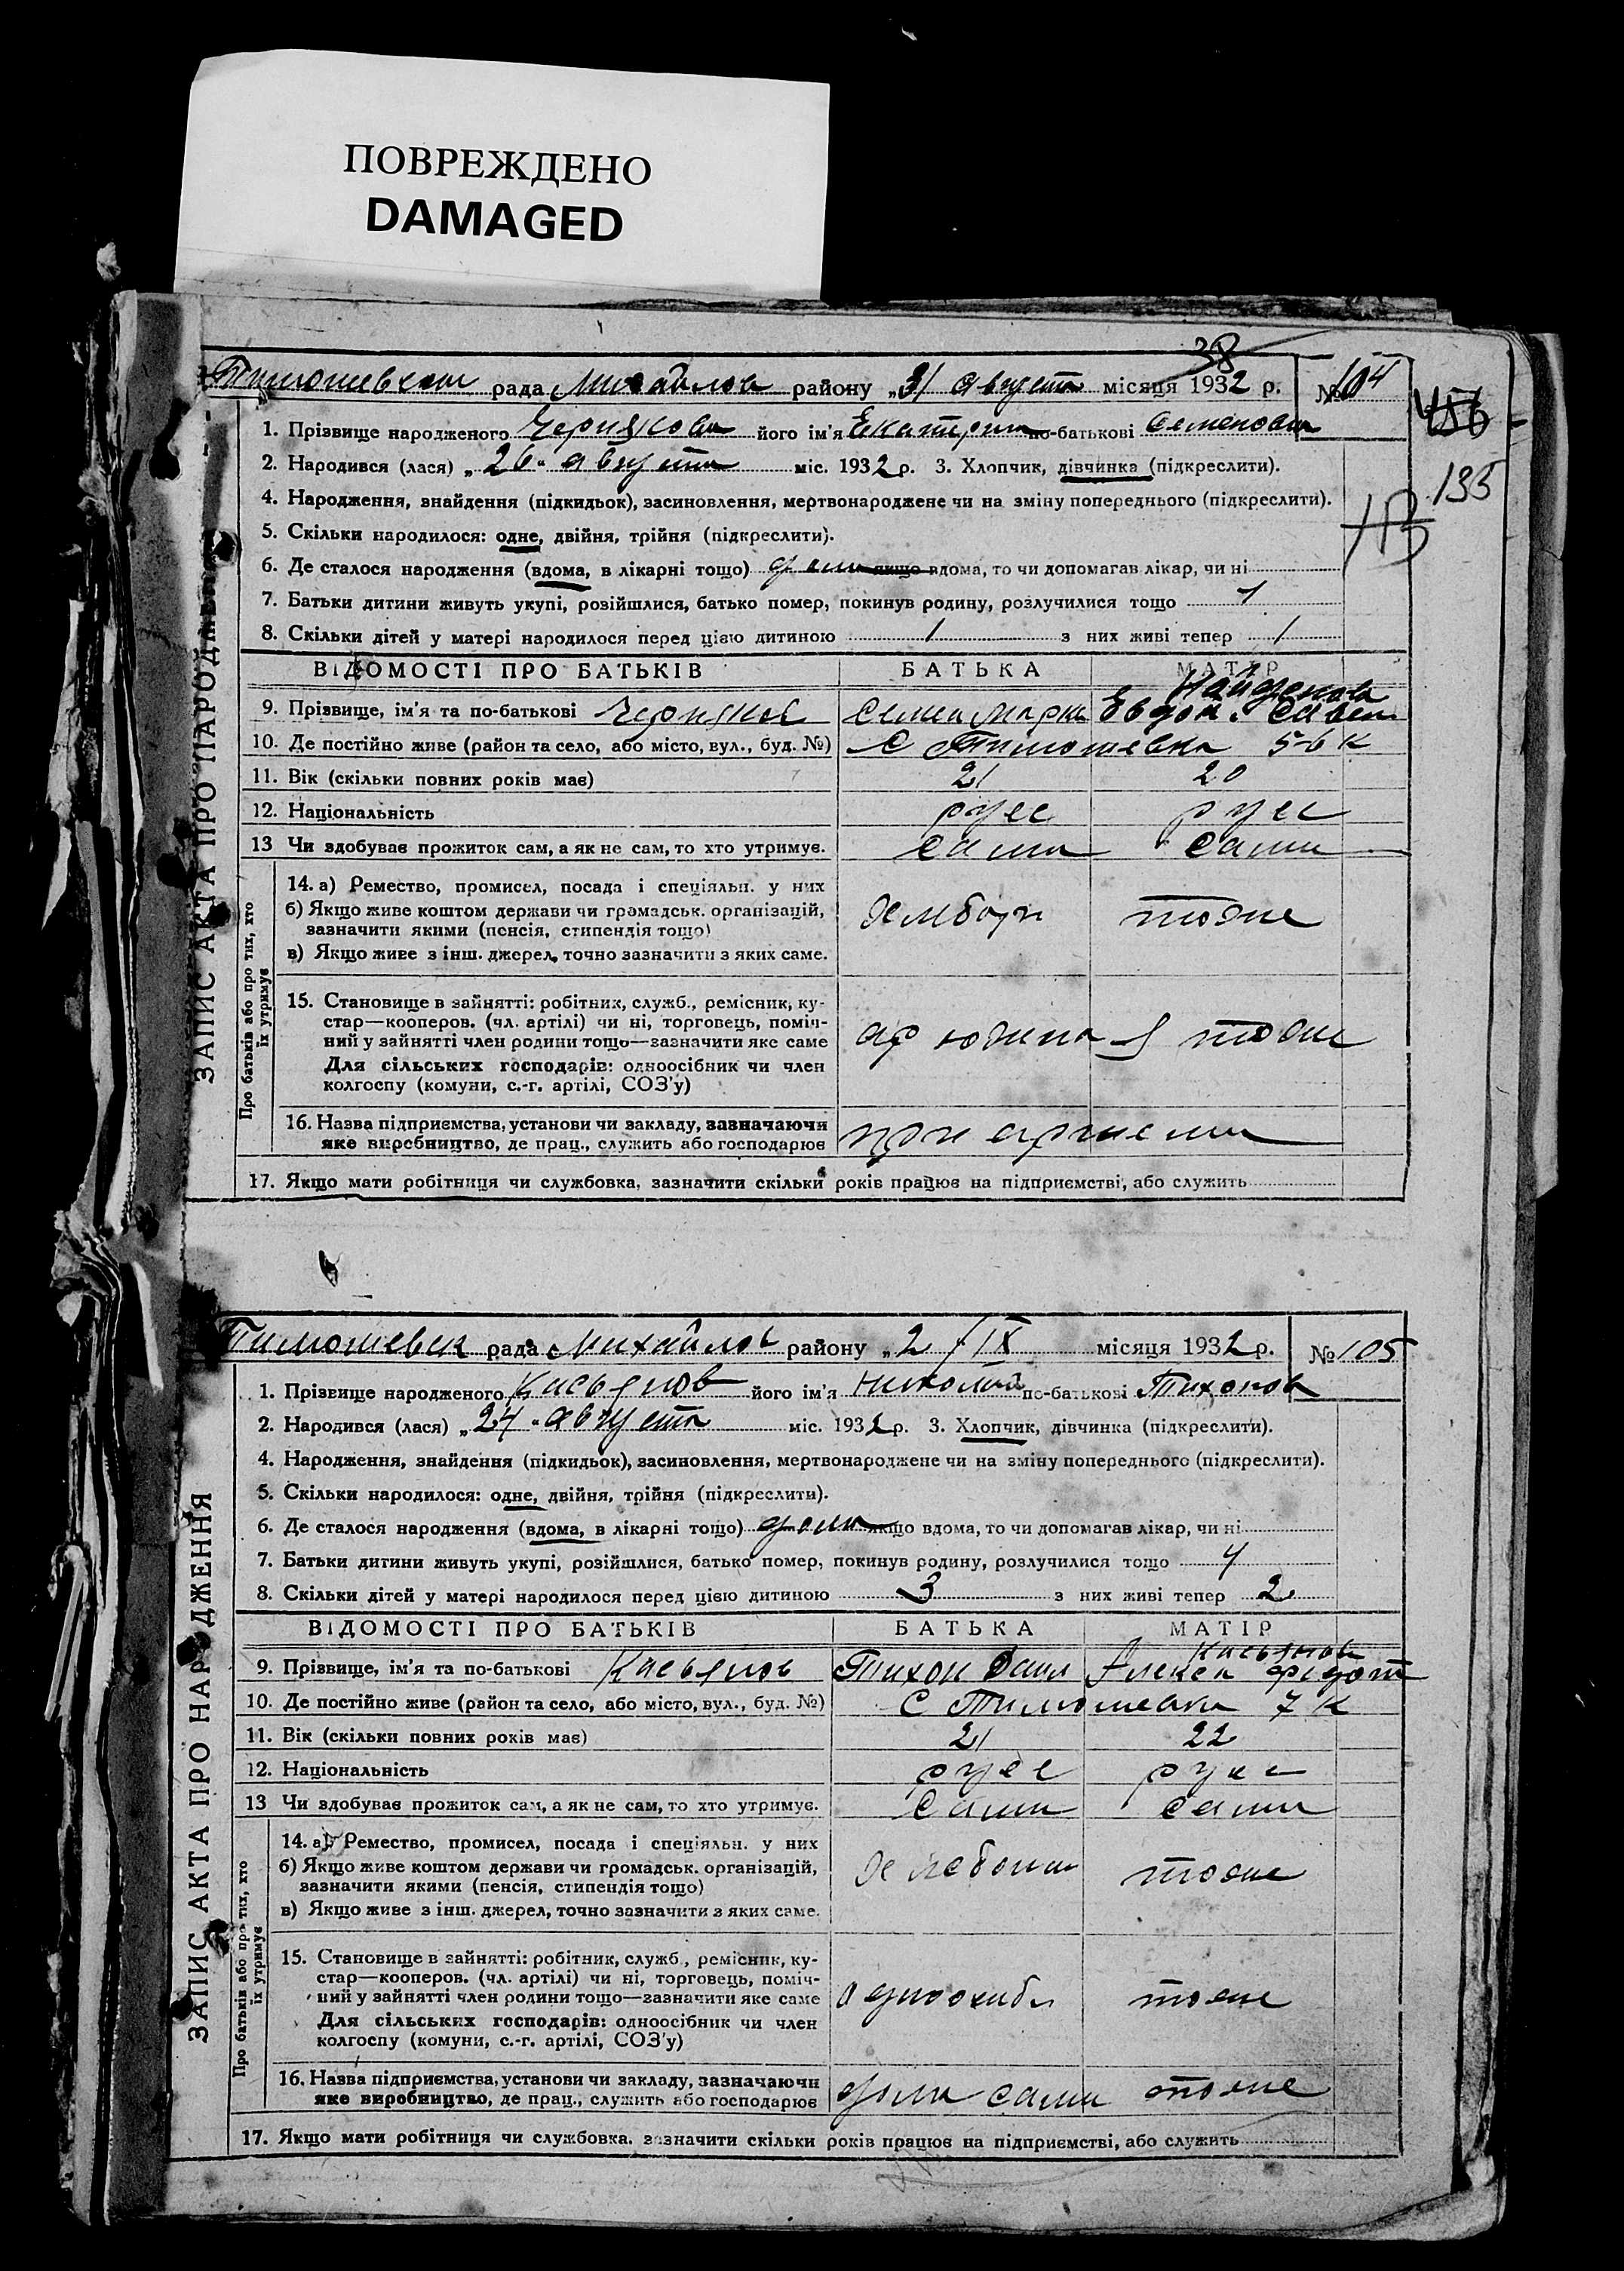 ПОВРЕЖДЕНО
DAMAGED
38
рада Михайлов району „31 августа місяця 1932 р. № 104
1. Прізвище народженого Чернякова його ім'я Екатерина по-батькові Семеновна
2. Народився (лася) „26" августа міс. 1932 р. 3. Хлопчик, дівчинка (підкреслити).
135
4. Народження, знайдення (підкидьок), засиновлення, мертвонароджене чи на зміну попереднього (підкреслити).
5. Скільки народилося: одне, двійня, трійня (підкреслити).
6. Де сталося народження (вдома, в лікарні тощо) дома якщо вдома, то чи допомагав лікар, чи ні
7. Батьки дитини живуть укупі, розійшлися, батько помер, покинув родину, розлучилися тощо
8. Скільки дітей у матері народилося перед цією дитиною 1 з них живі тепер 1
ВІДОМОСТІ ПРО БАТЬКІВ БАТЬКА МАТІР
9. Прізвище, ім'я та по-батькові Черняков Семен Марк Найденова Евдок. Савел
10. Де постійно живе (район та село, або місто, вул., буд. №) С Тимошевка 5-6 к
11. Вік (скільки повних років має) 21 20
12. Національність русс русс
13 Чи здобуває прожиток сам, а як не сам, то хто утримує. сами сами
14. а) Ремество, промисел, посада і спеціяльн. у них
б) Якщо живе коштом держави чи громадськ. організацій,
зазначити якими (пенсія, стипендія тощо)
в) Якщо живе з інш. джерел, точно зазначити з яких саме.
тоже
15. Становище в зайнятті: робітник, служб., ремісник, ку-
стар—кооперов. (чл. артілі) чи ні, торговець, поміч-
ний у зайнятті член родини тощо—зазначити яке саме
Для сільських господарів: одноосібник чи член
колгоспу (комуни, с.-г. артілі, СОЗ'у)
тоже
16. Назва підприємства, установи чи закладу, зазначаючи
яке виробництво, де прац., служить або господарює
при артели
17. Якщо мати робітниця чи службовка, зазначити скільки років працює на підприємстві, або служить
ЗАПИС АКТА ПРО НАРОДЖЕННЯ
Про батьків або про тих, хто
їх утримує
Тимошевск рада Михайлов району „2/IX місяця 1932 р. № 105
1. Прізвище народженого Касьянов його ім'я Николай по-батькові Тихонов
2. Народився (лася) „24" августа міс. 1932 р. 3. Хлопчик, дівчинка (підкреслити).
4. Народження, знайдення (підкидьок), засиновлення, мертвонароджене чи на зміну попереднього (підкреслити).
5. Скільки народилося: одне, двійня, трійня (підкреслити).
6. Де сталося народження (вдома, в лікарні тощо) дома якщо вдома, то чи допомагав лікар, чи ні
7. Батьки дитини живуть укупі, розійшлися, батько помер, покинув родину, розлучилися тощо
8. Скільки дітей у матері народилося перед цією дитиною 3 з них живі тепер 2
ВІДОМОСТІ ПРО БАТЬКІВ БАТЬКА МАТІР
9. Прізвище, ім'я та по-батькові Касьянов Тихон Касьянов Алекса Федот
10. Де постійно живе (район та село, або місто, вул., буд. №) С Тимошевка 7 к
11. Вік (скільки повних років має) 21 22
12. Національність русс русс
13 Чи здобуває прожиток сам, а як не сам, то хто утримує. сами сами
14. а) Ремество, промисел, посада і спеціяльн. у них
б) Якщо живе коштом держави чи громадськ. організацій,
зазначити якими (пенсія, стипендія тощо)
в) Якщо живе з інш. джерел, точно зазначити з яких саме.
тоже
15. Становище в зайнятті: робітник, служб., ремісник, ку-
стар—кооперов. (чл. артілі) чи ні, торговець, поміч-
ний у зайнятті член родини тощо—зазначити яке саме
Для сільських господарів: одноосібник чи член
колгоспу (комуни, с.-г. артілі, СОЗ'у)
тоже
16. Назва підприємства, установи чи закладу, зазначаючи
яке виробництво, де прац., служить або господарює
дома сами тоже
17. Якщо мати робітниця чи службовка, зазначити скільки років працює на підприємстві, або служить
ЗАПИС АКТА ПРО НАРОДЖЕННЯ
Про батьків або про тих, хто
їх утримує